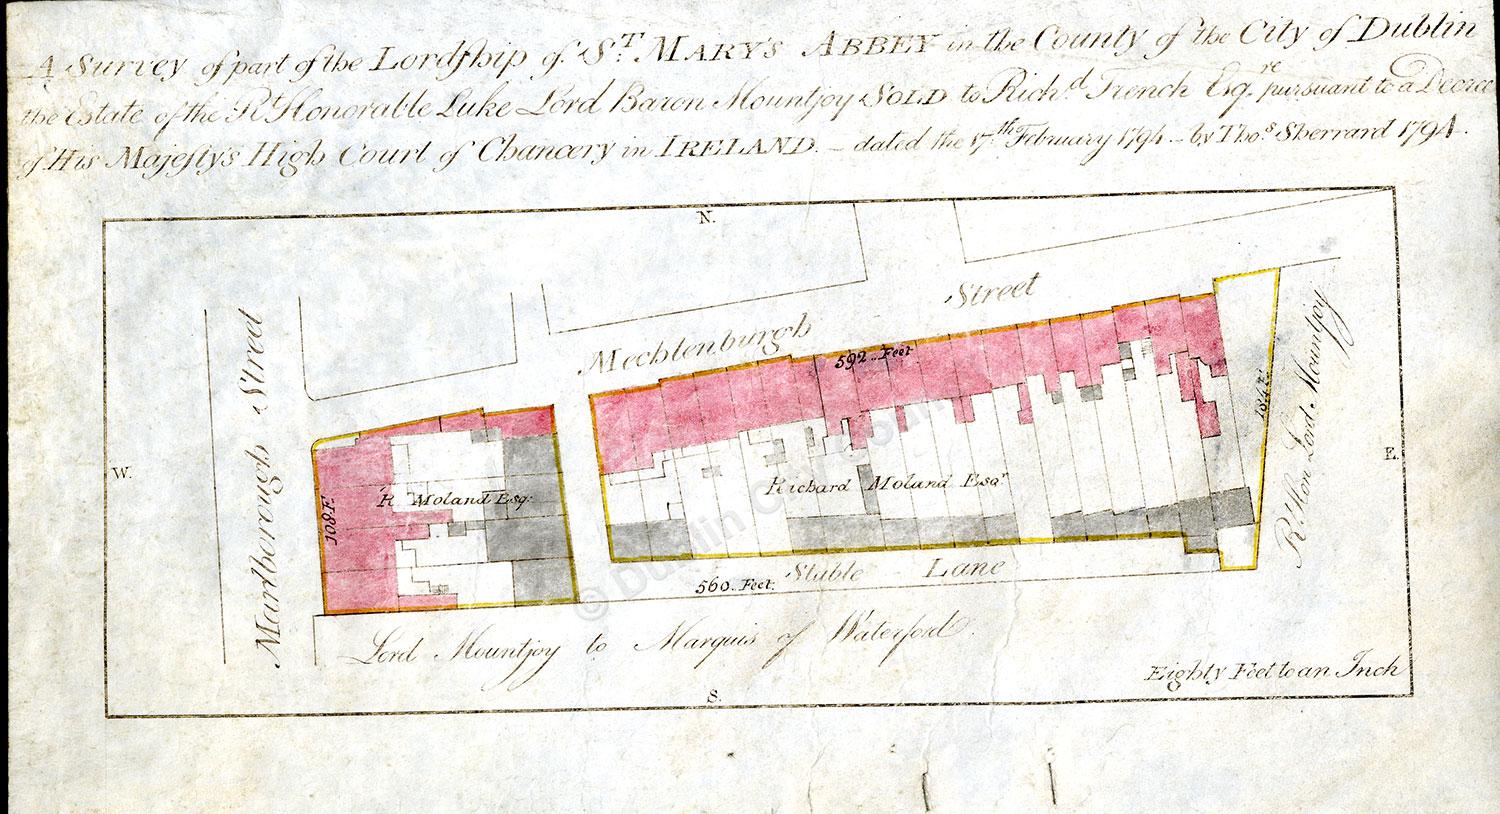 A Survey of part of the Lordship of St. MARY'S ABBEY in the County of the City of Dublin
the Estate of the Rt Honorable Luke Lord Baron Mountjoy SOLD to Richd. Trench Esqre. pursuant to a Decree
of His Majesty's High Court of Chancery in IRELAND. – dated the 17th. February 1794 – by Thos. Sherrard 1794.
N.
Marlborough Street
Mecklenburgh Street
592.. Feet
W.
E.
108 F.
R. Moland Esqr.
Richard Moland Esqr.
184 F.
Rt. Hon Lord Mountjoy
560. Feet.
Stable Lane
Lord Mountjoy to Marquis of Waterford
Eighty Feet to an Inch
S.
© Dublin City